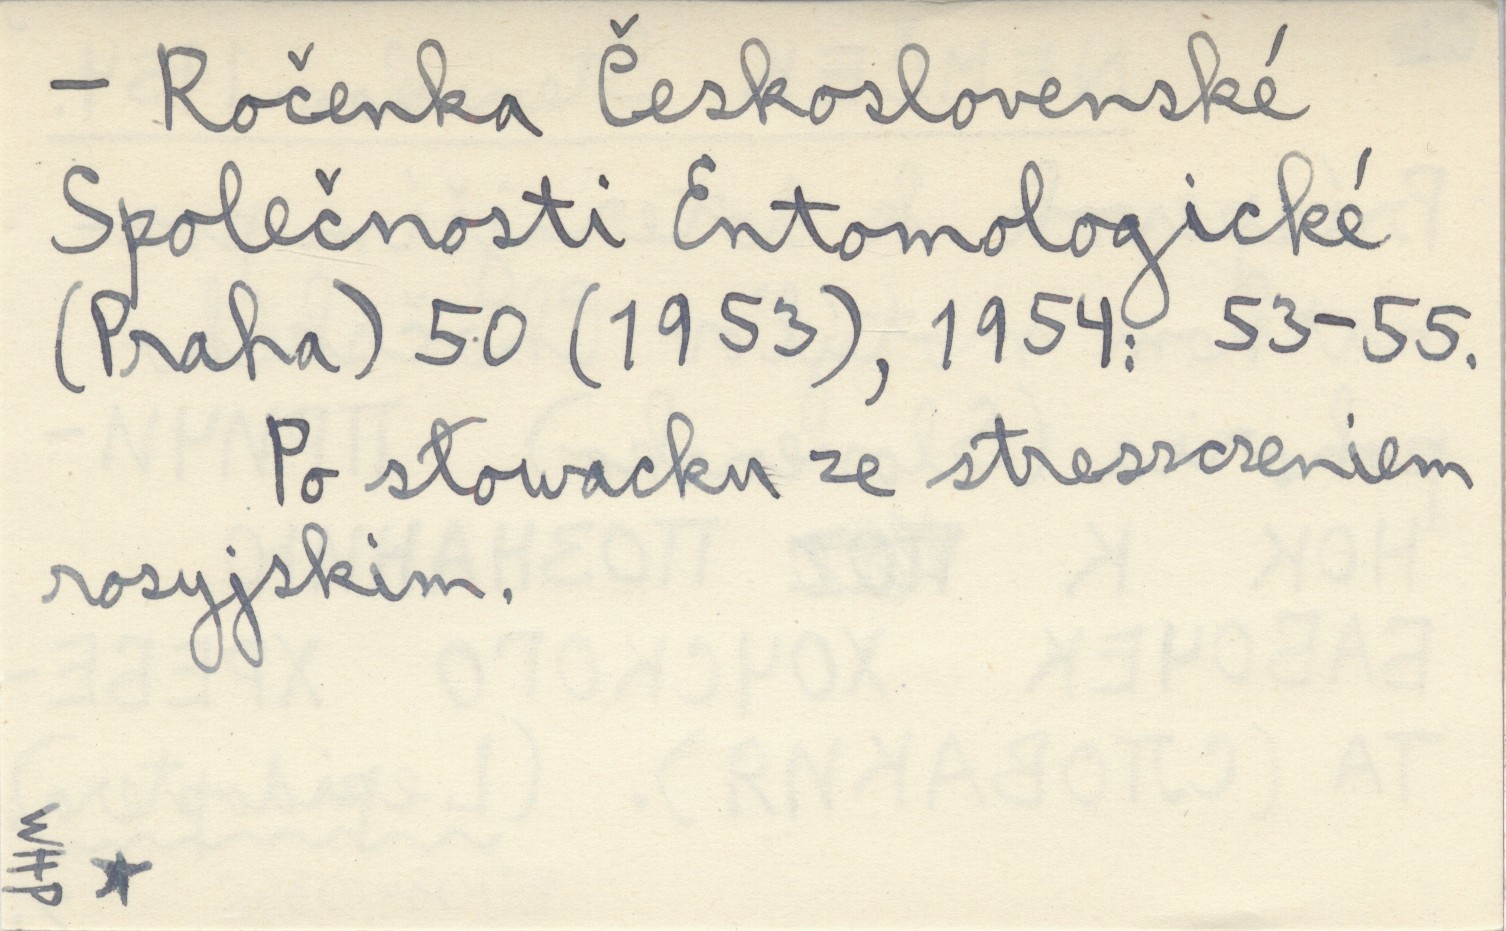 - Ročenka Československé
Společnosti Entomologické
(Praha) 50 (1953), 1954: 53-55.
Po słowacku ze streszczeniem
rosyjskim.
WHP ★